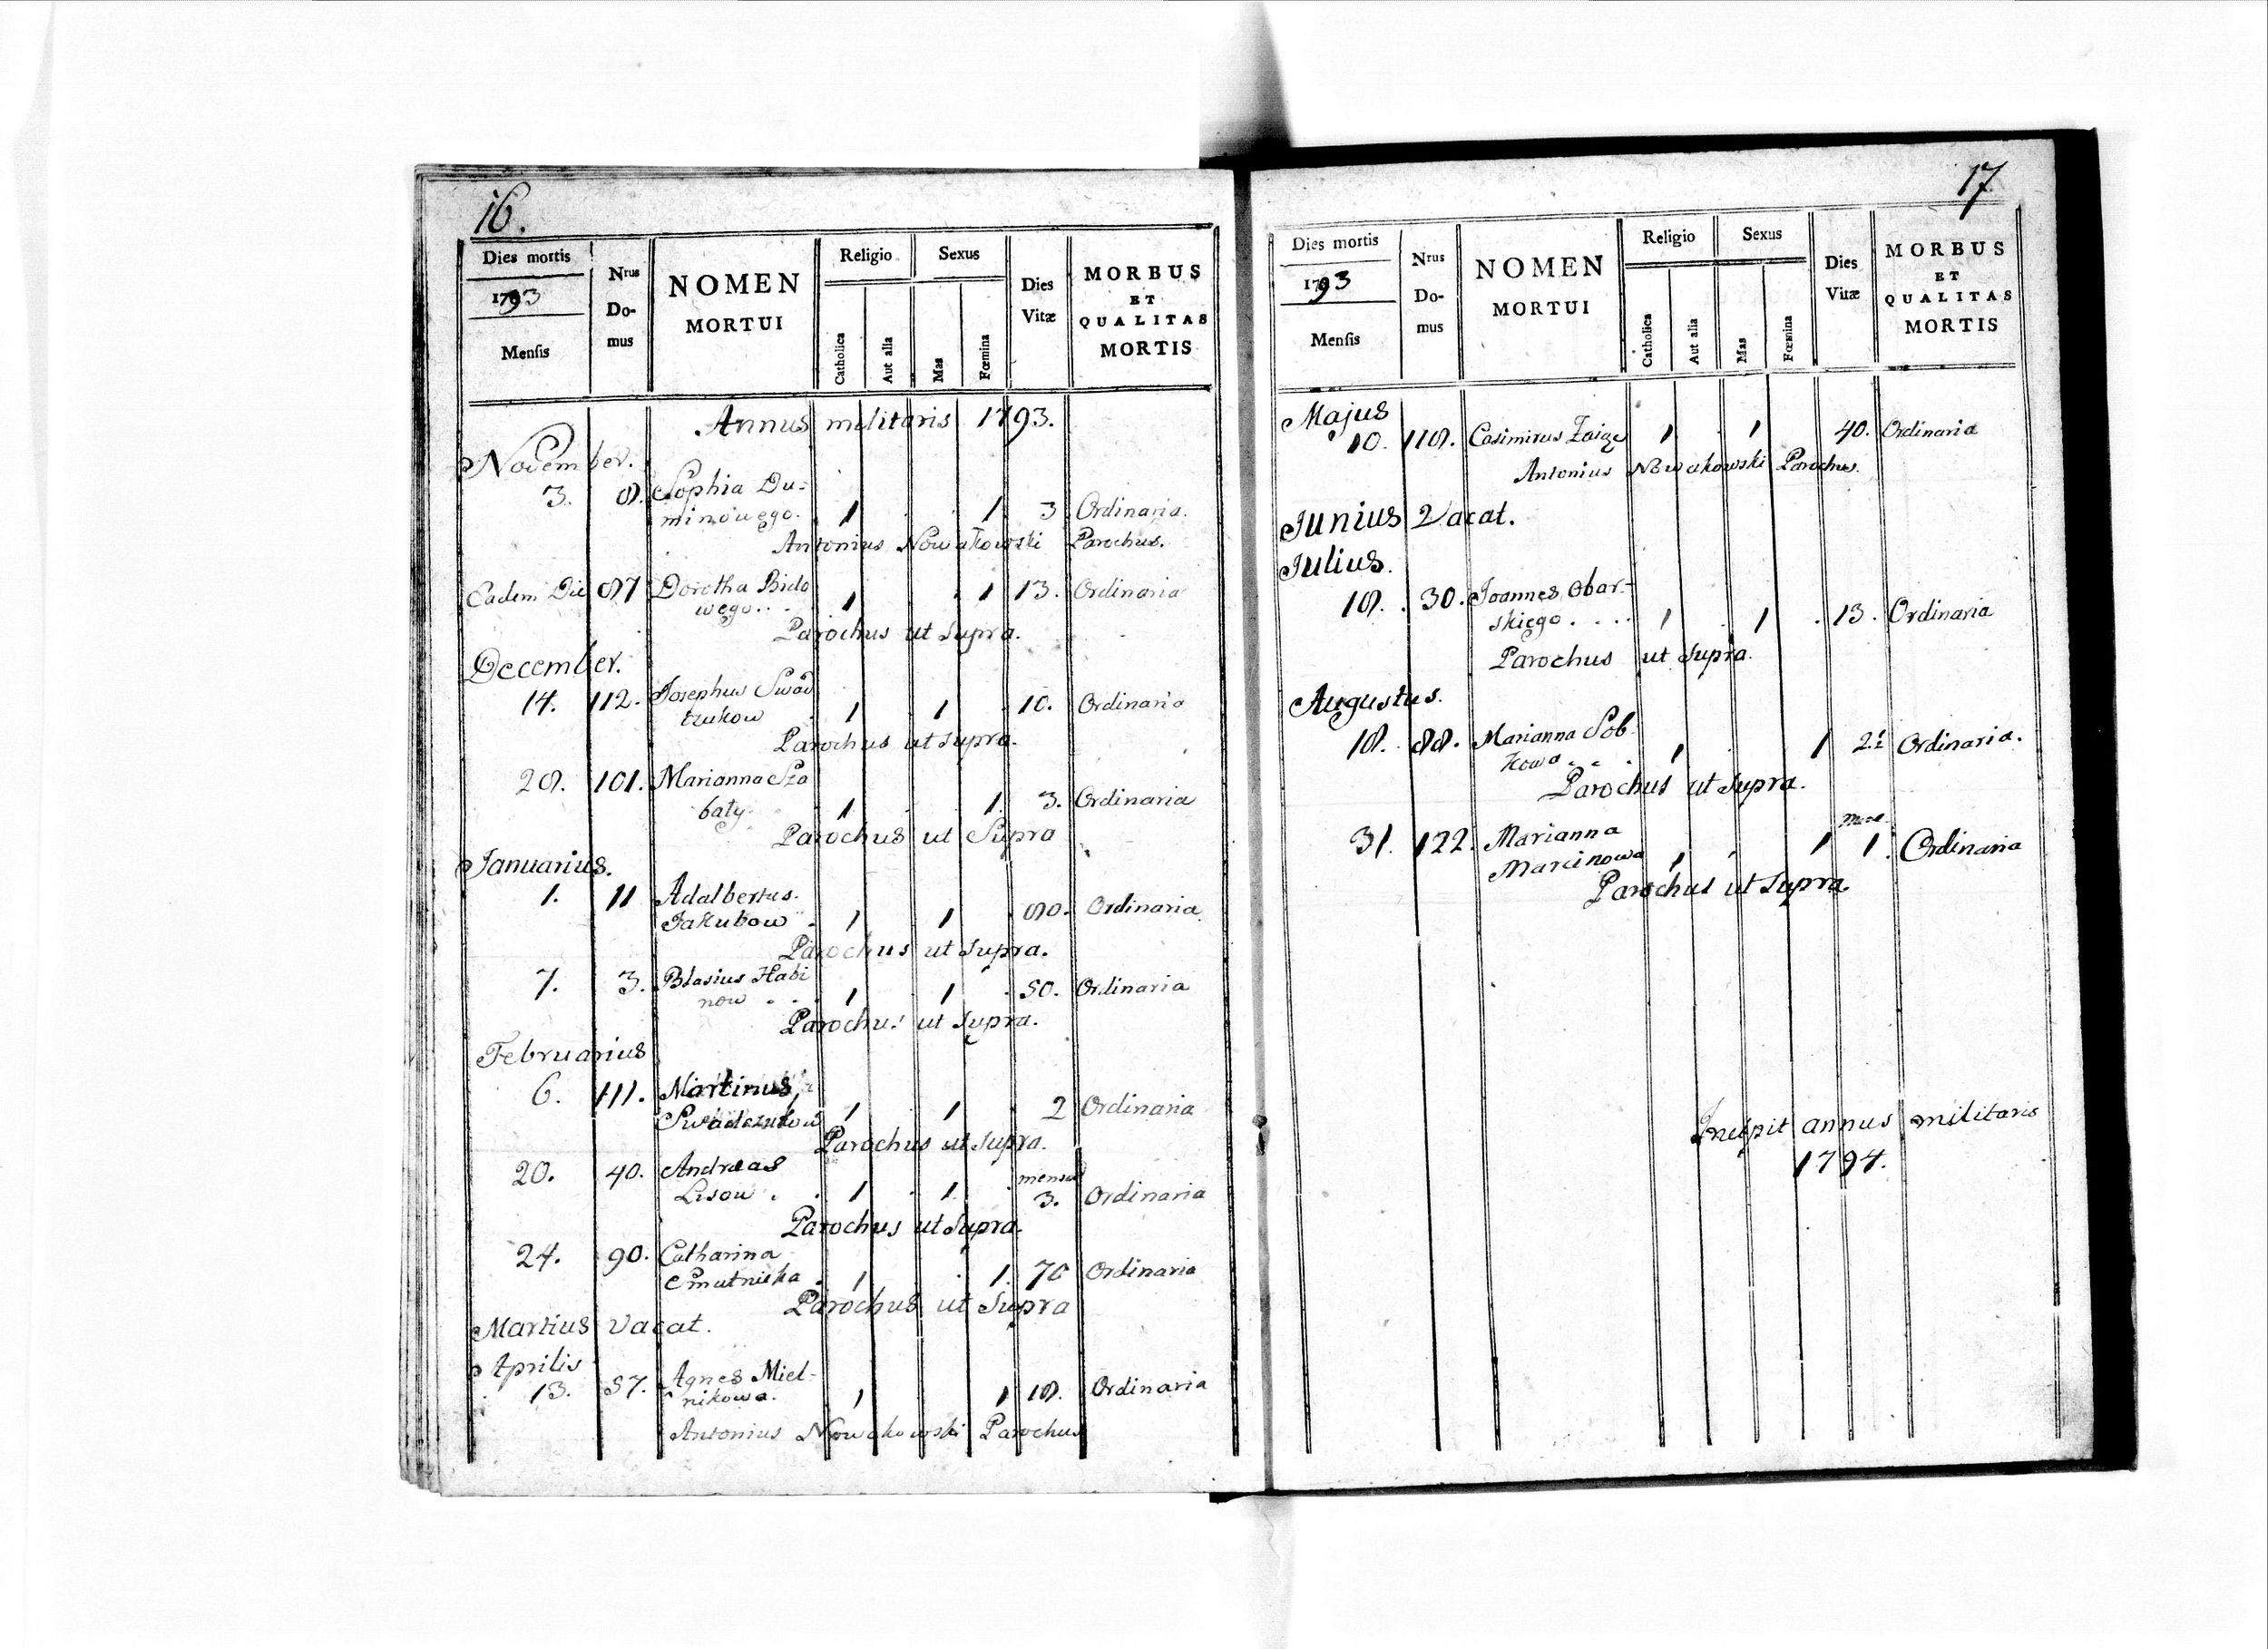 16.
Dies mortis
1793
Mensis
Nrus Domus
NOMEN MORTUI
Religio
Catholica
Aut alia
Sexus
Mas
Fœmina
Dies Vitæ
MORBUS ET QUALITAS MORTIS
Annus militaris 1793.
November.
3. 8. Sophia Du-
minowego. 1 1 3 Ordinaria.
Antonius Nowakowski Parochus.
Eadem Die 87 Dorotha Bido
wego.. 1 1 13. Ordinaria
Parochus ut Supra.
December.
14. 112. Josephus Swad
czukow 1 1 10. Ordinaria
Parochus ut Supra.
28. 101. Marianna Sza
baty. 1 1. 3. Ordinaria
Parochus ut Supra
Januarius.
1. 11 Adalbertus.
Jakubow. 1 1 80. Ordinaria
Parochus ut Supra.
7. 3. Blasius Habi
now . . 1 1 50. Ordinaria
Parochus ut Supra.
Februarius
6. 111. Martinus
Swadczukow 1 1 2 Ordinaria
Parochus ut Supra.
20. 40. Andreas mens
Lisow . 1 1. 3. Ordinaria
Parochus ut Supra.
24. 90. Catharina
Smutnicka 1 1. 70 Ordinaria
Parochus ut Supra
Martius vacat.
Aprilis
13. 57. Agnes Miel-
nikowa. 1 1 18. Ordinaria
Antonius Nowakowski Parochus
17
Dies mortis
1793
Mensis
Nrus Domus
NOMEN MORTUI
Religio
Catholica
Aut alia
Sexus
Mas
Fœmina
Dies Vitæ
MORBUS ET QUALITAS MORTIS
Majus
10. 118. Casimirus 1 1 40. Ordinaria
Antonius Nowakowski Parochus.
Junius Vacat.
Julius.
18. 30. Joannes Obar-
skiego .... 1 1 13. Ordinaria
Parochus ut Supra.
Augustus.
18. 88. Marianna Sob
kowa . . 1 1 2½ Ordinaria.
Parochus ut Supra.
31. 122. Marianna
Marcinowa 1 1 1. Ordinaria
Parochus ut Supra.
Incipit annus militaris
1794.